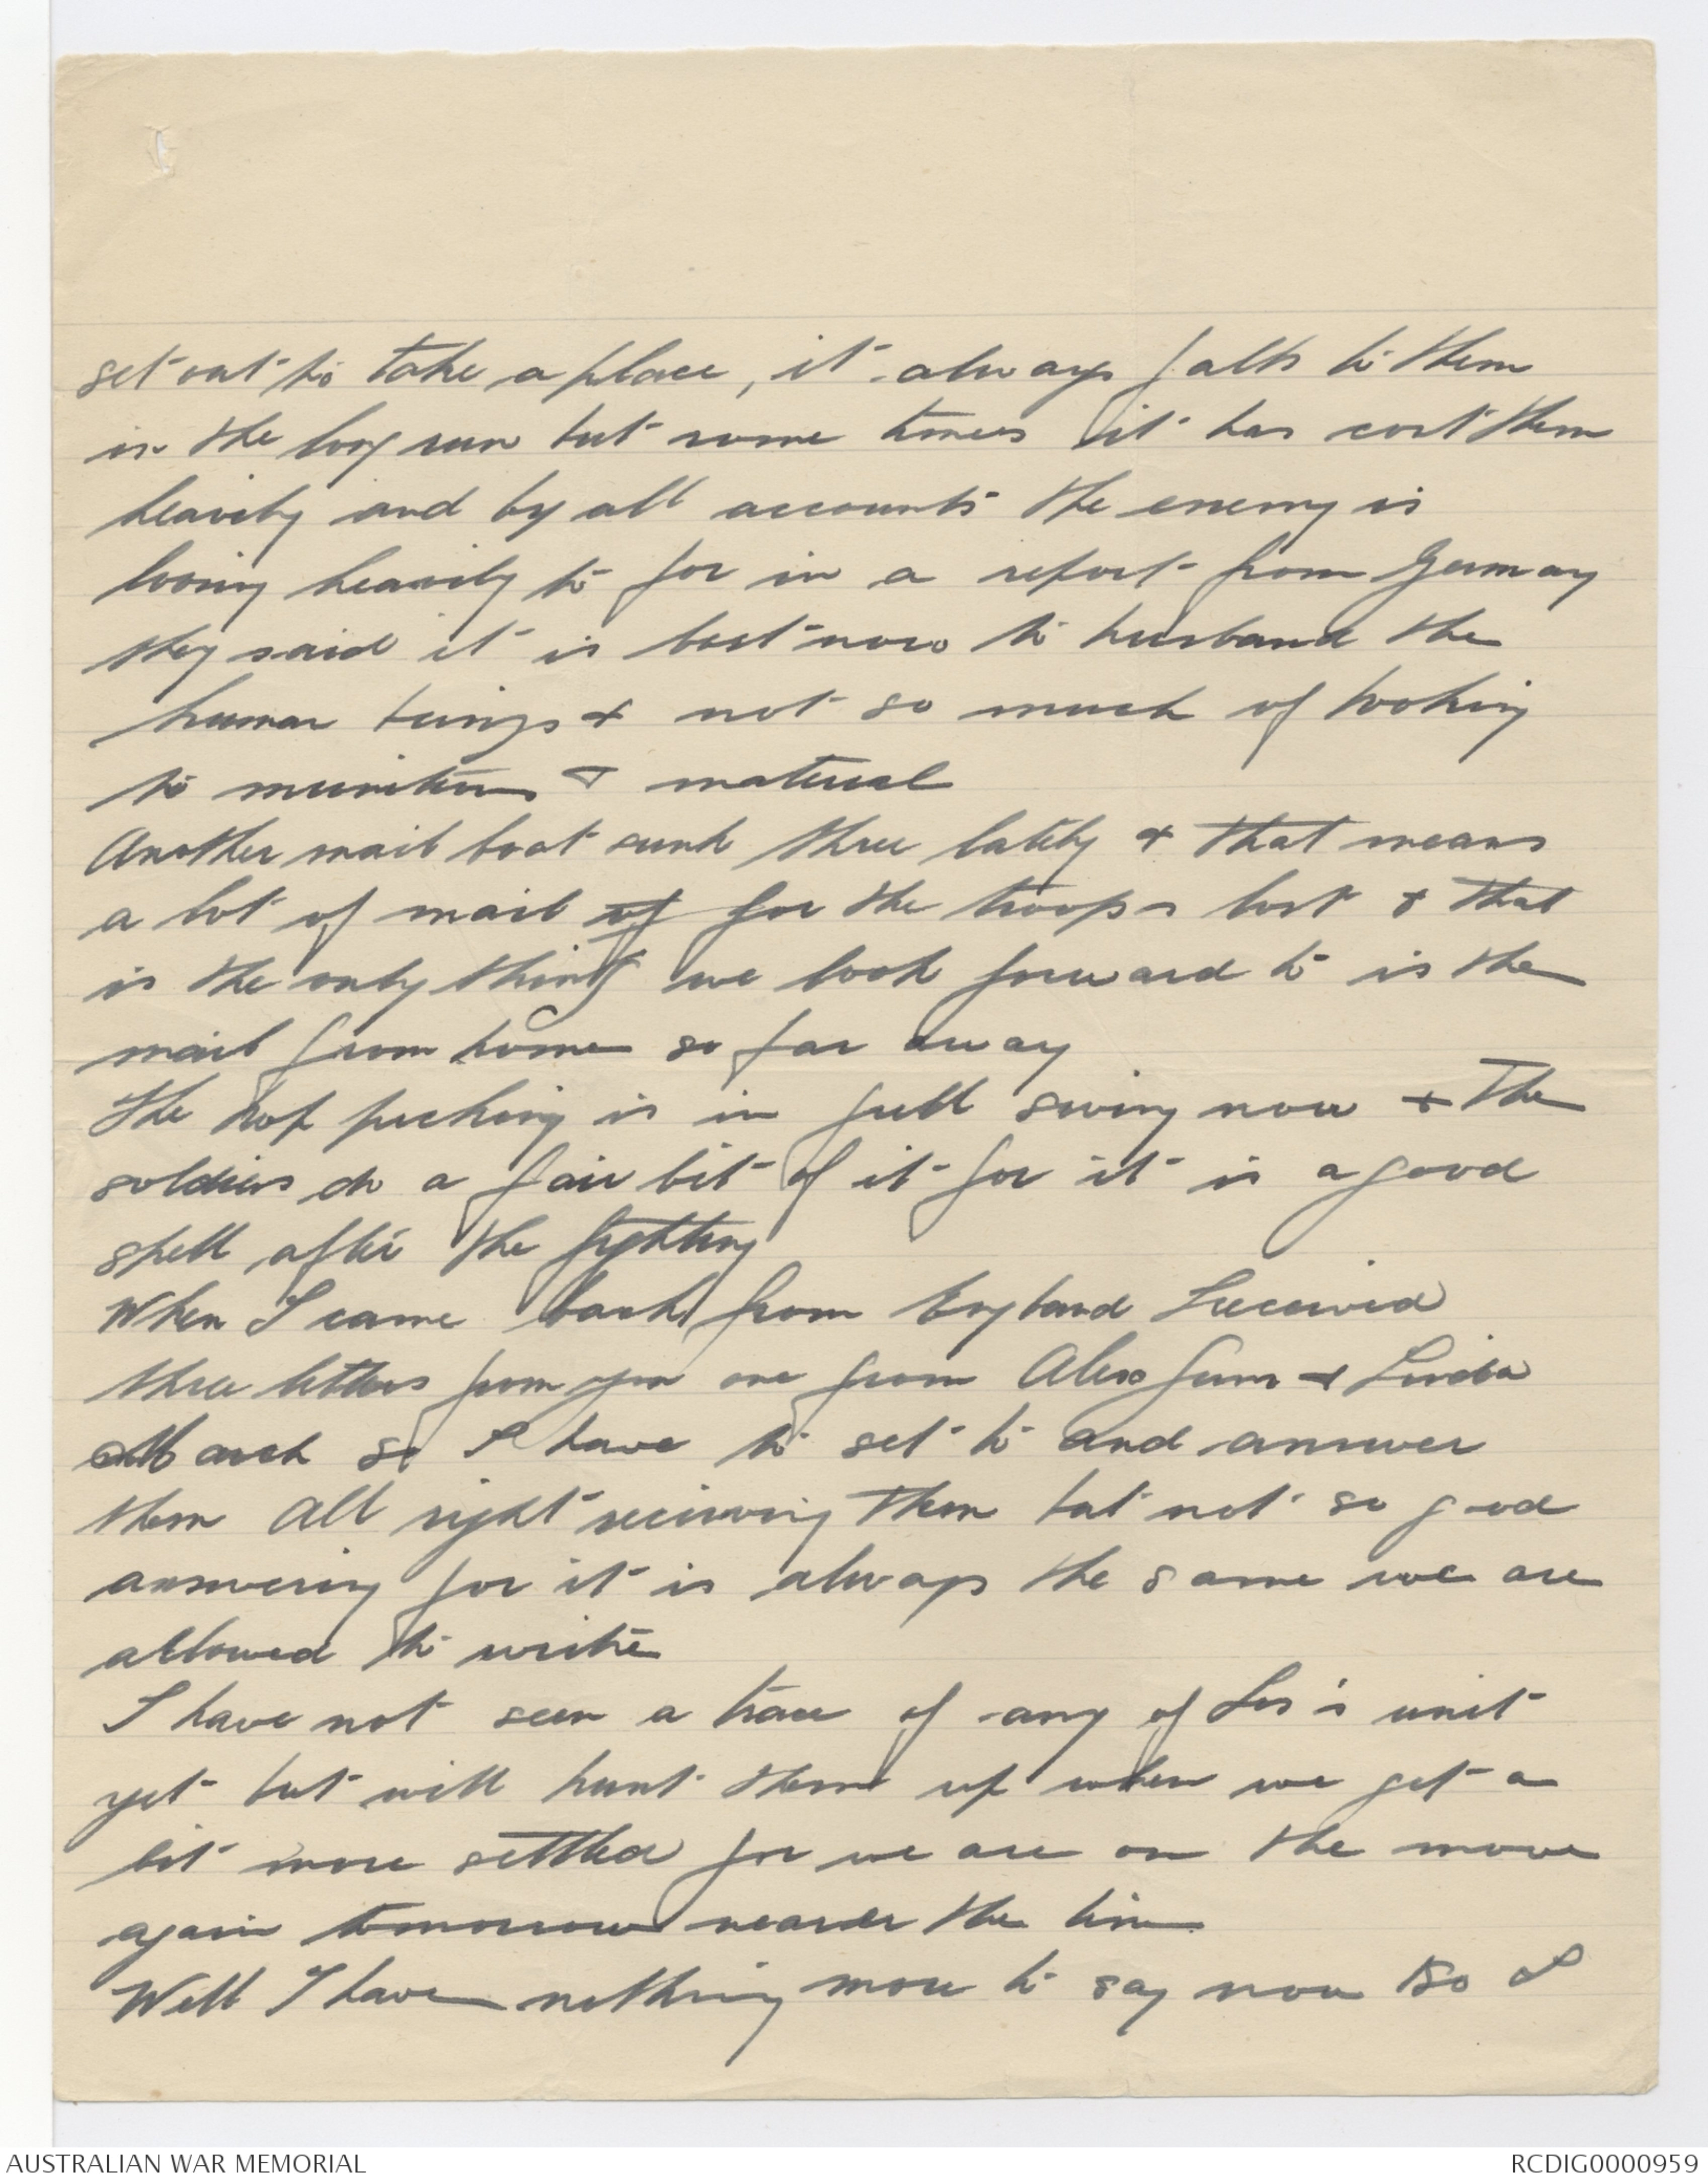 set out to take a place, it always falls to them
in the long run but some times it has cost them
heavily and by all accounts the enemy is
loosing heavily to for in a report from Germany
they said it is best now to husband the
human beings & not so much of looking
to munitions & material
Another mail boat sunk three lately & that means
a lot of mail of for the troops lost & that
is the only thing we look forward to is the
mail from home so far away
The hop picking is in full swing now & the
soldiers do a fair bit of it for it is a good
spell after the fighting
When I came back from England I received
three letters from you one from Alex & Linda
March so I have to set to and answer
them All right receiving them but not so good
answering for it is always the same we are
allowed to write
I have not seen a trace of any of Les's unit
yet but will hunt them up when we get a
bit more settled for we are on the move
again tomorrow nearer the line.
Well I have nothing more to say now so I
AUSTRALIAN WAR MEMORIAL
RCDIG0000959